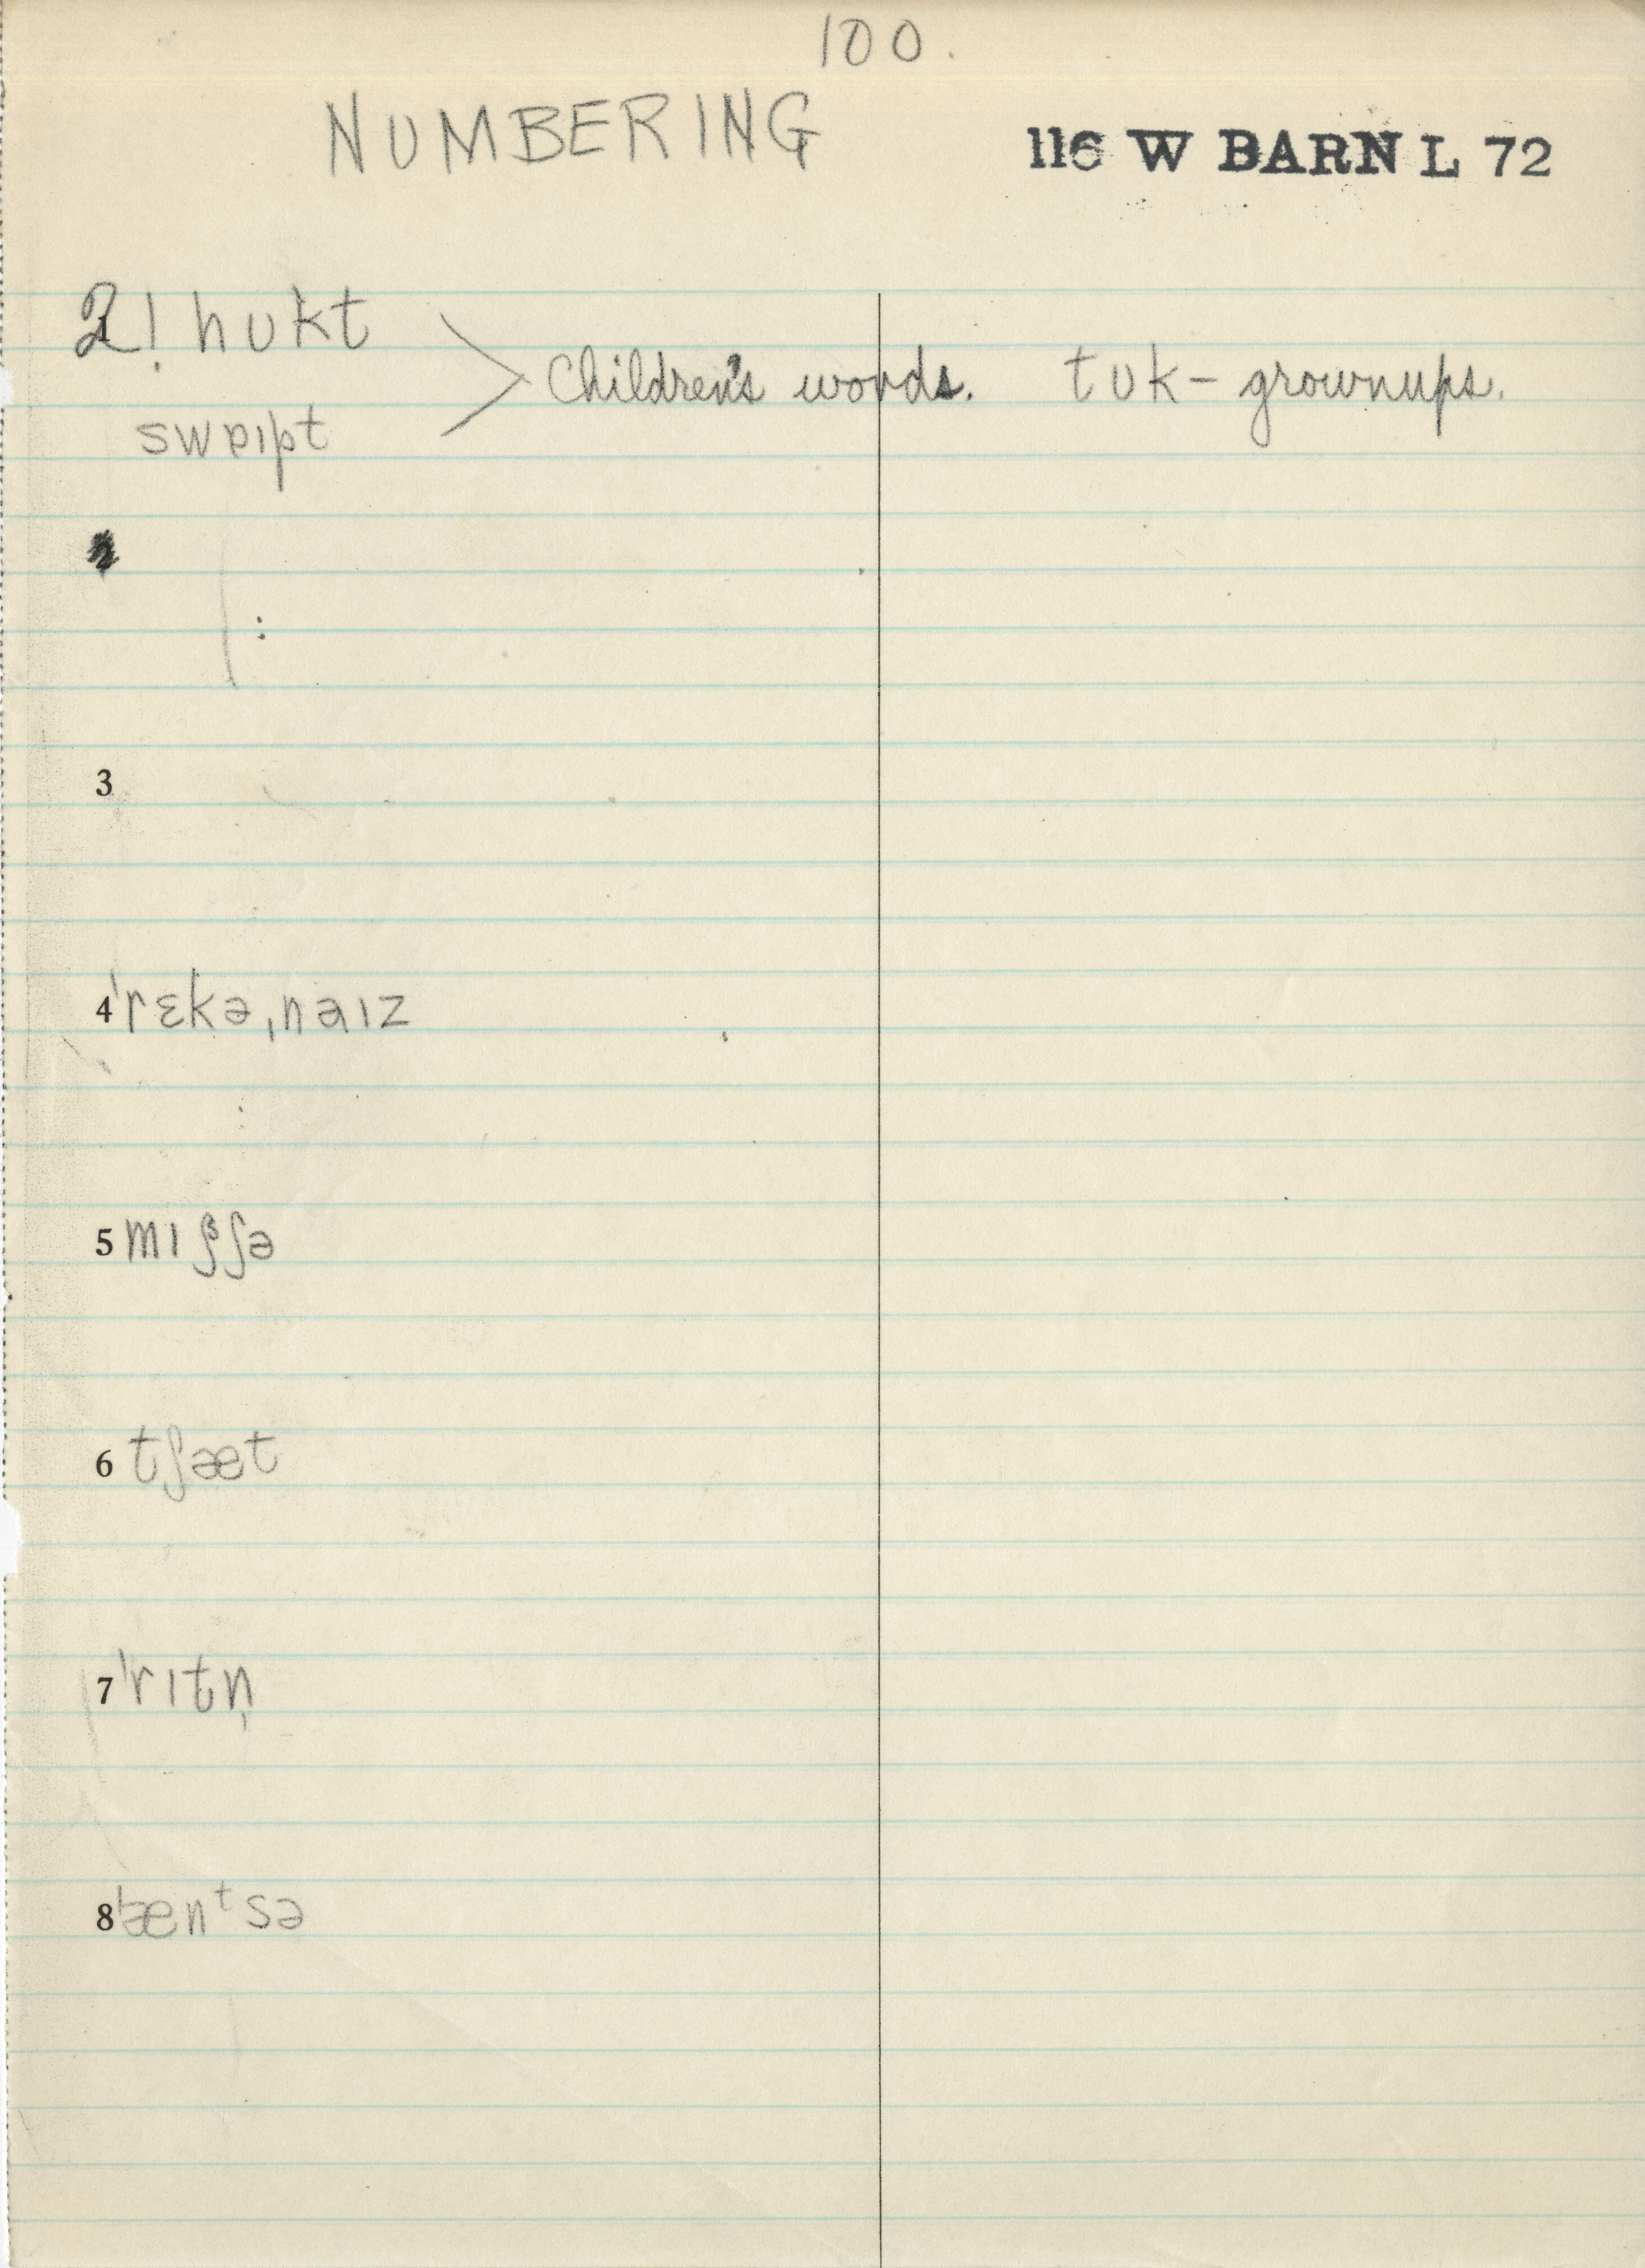 100.
NUMBERING
116 W BARN L 72
2! hʊkt
Children's words. tʊk – grownups.
swɐɪpt
3
4 ˈrɛkəˌnaɪz
5 mɪʃʃə
6 tʃæt
7 ˈrɪtn̩
8 ˈænᵗsə